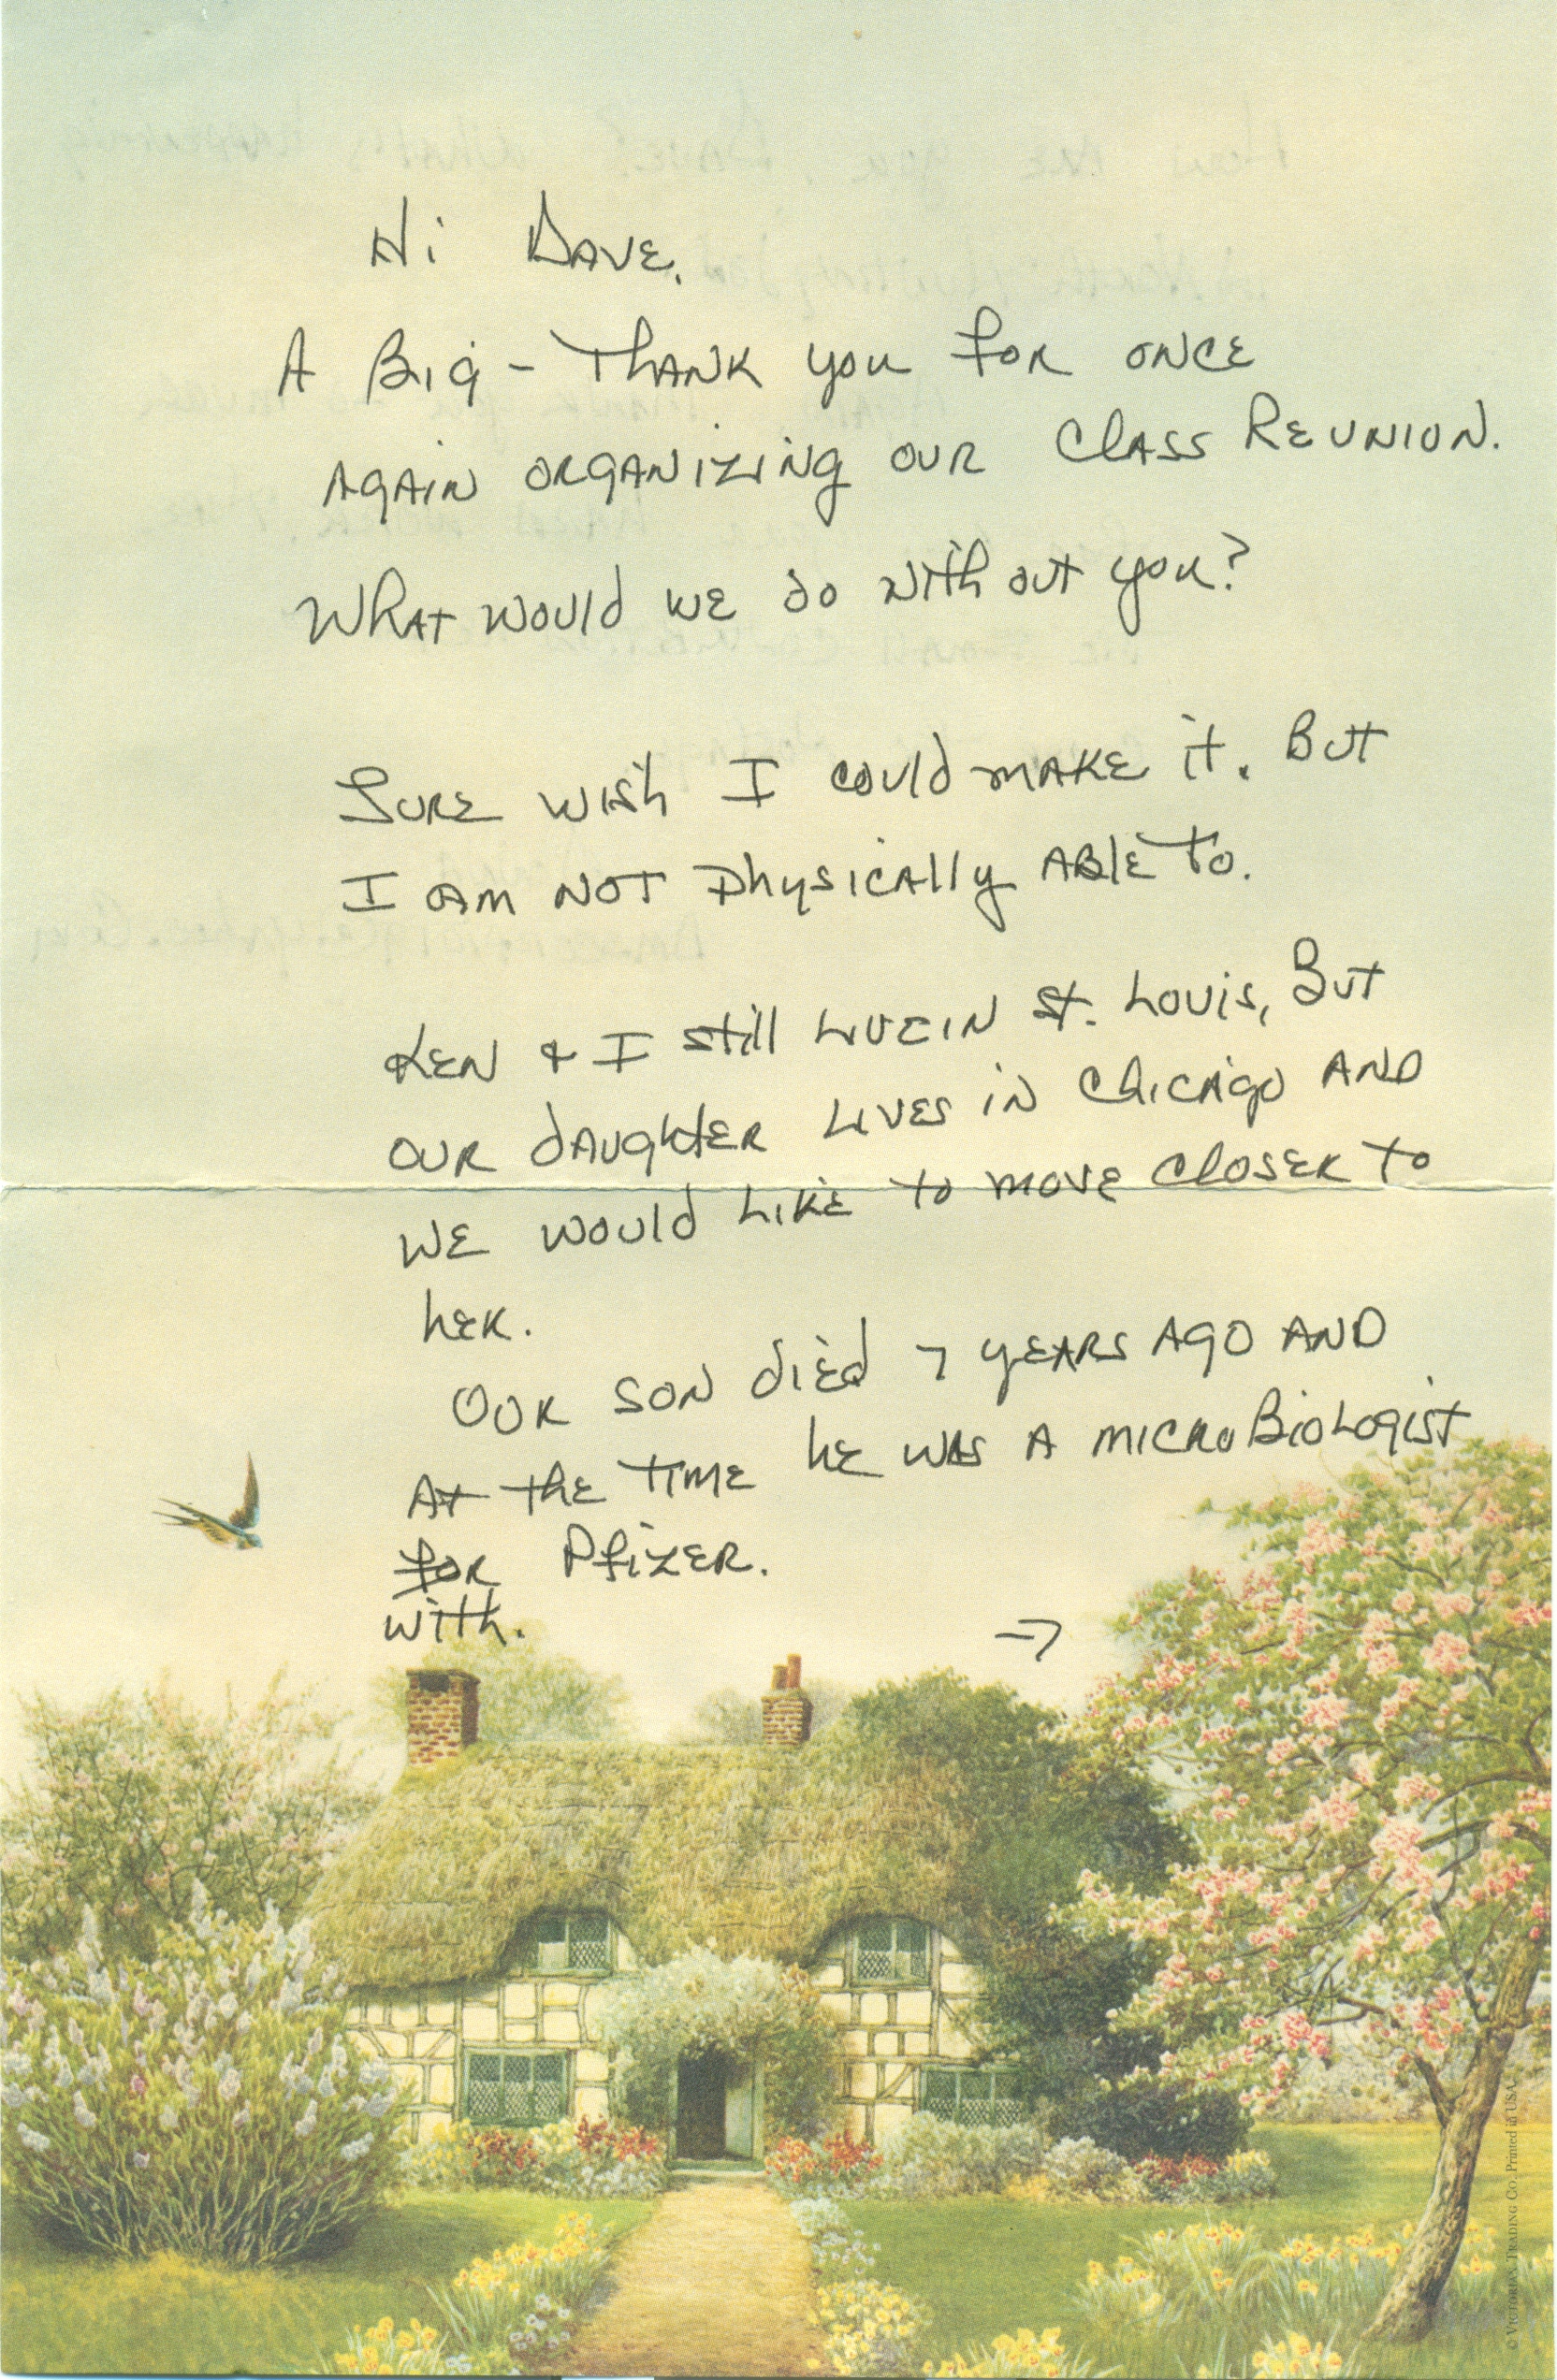 Hi Dave.
A Big - Thank you for once
again organizing our class Reunion.
What would we do with out you?
Sure wish I could make it. But
I am not physically able to.
Ken & I still live in St. Louis, But
our daughter lives in Chicago and
we would like to move closer to
her.
Our son died 7 years ago and
At the time he was a microBiologist
for Pfizer.
with.
→
© Victorian Trading Co. Printed in USA